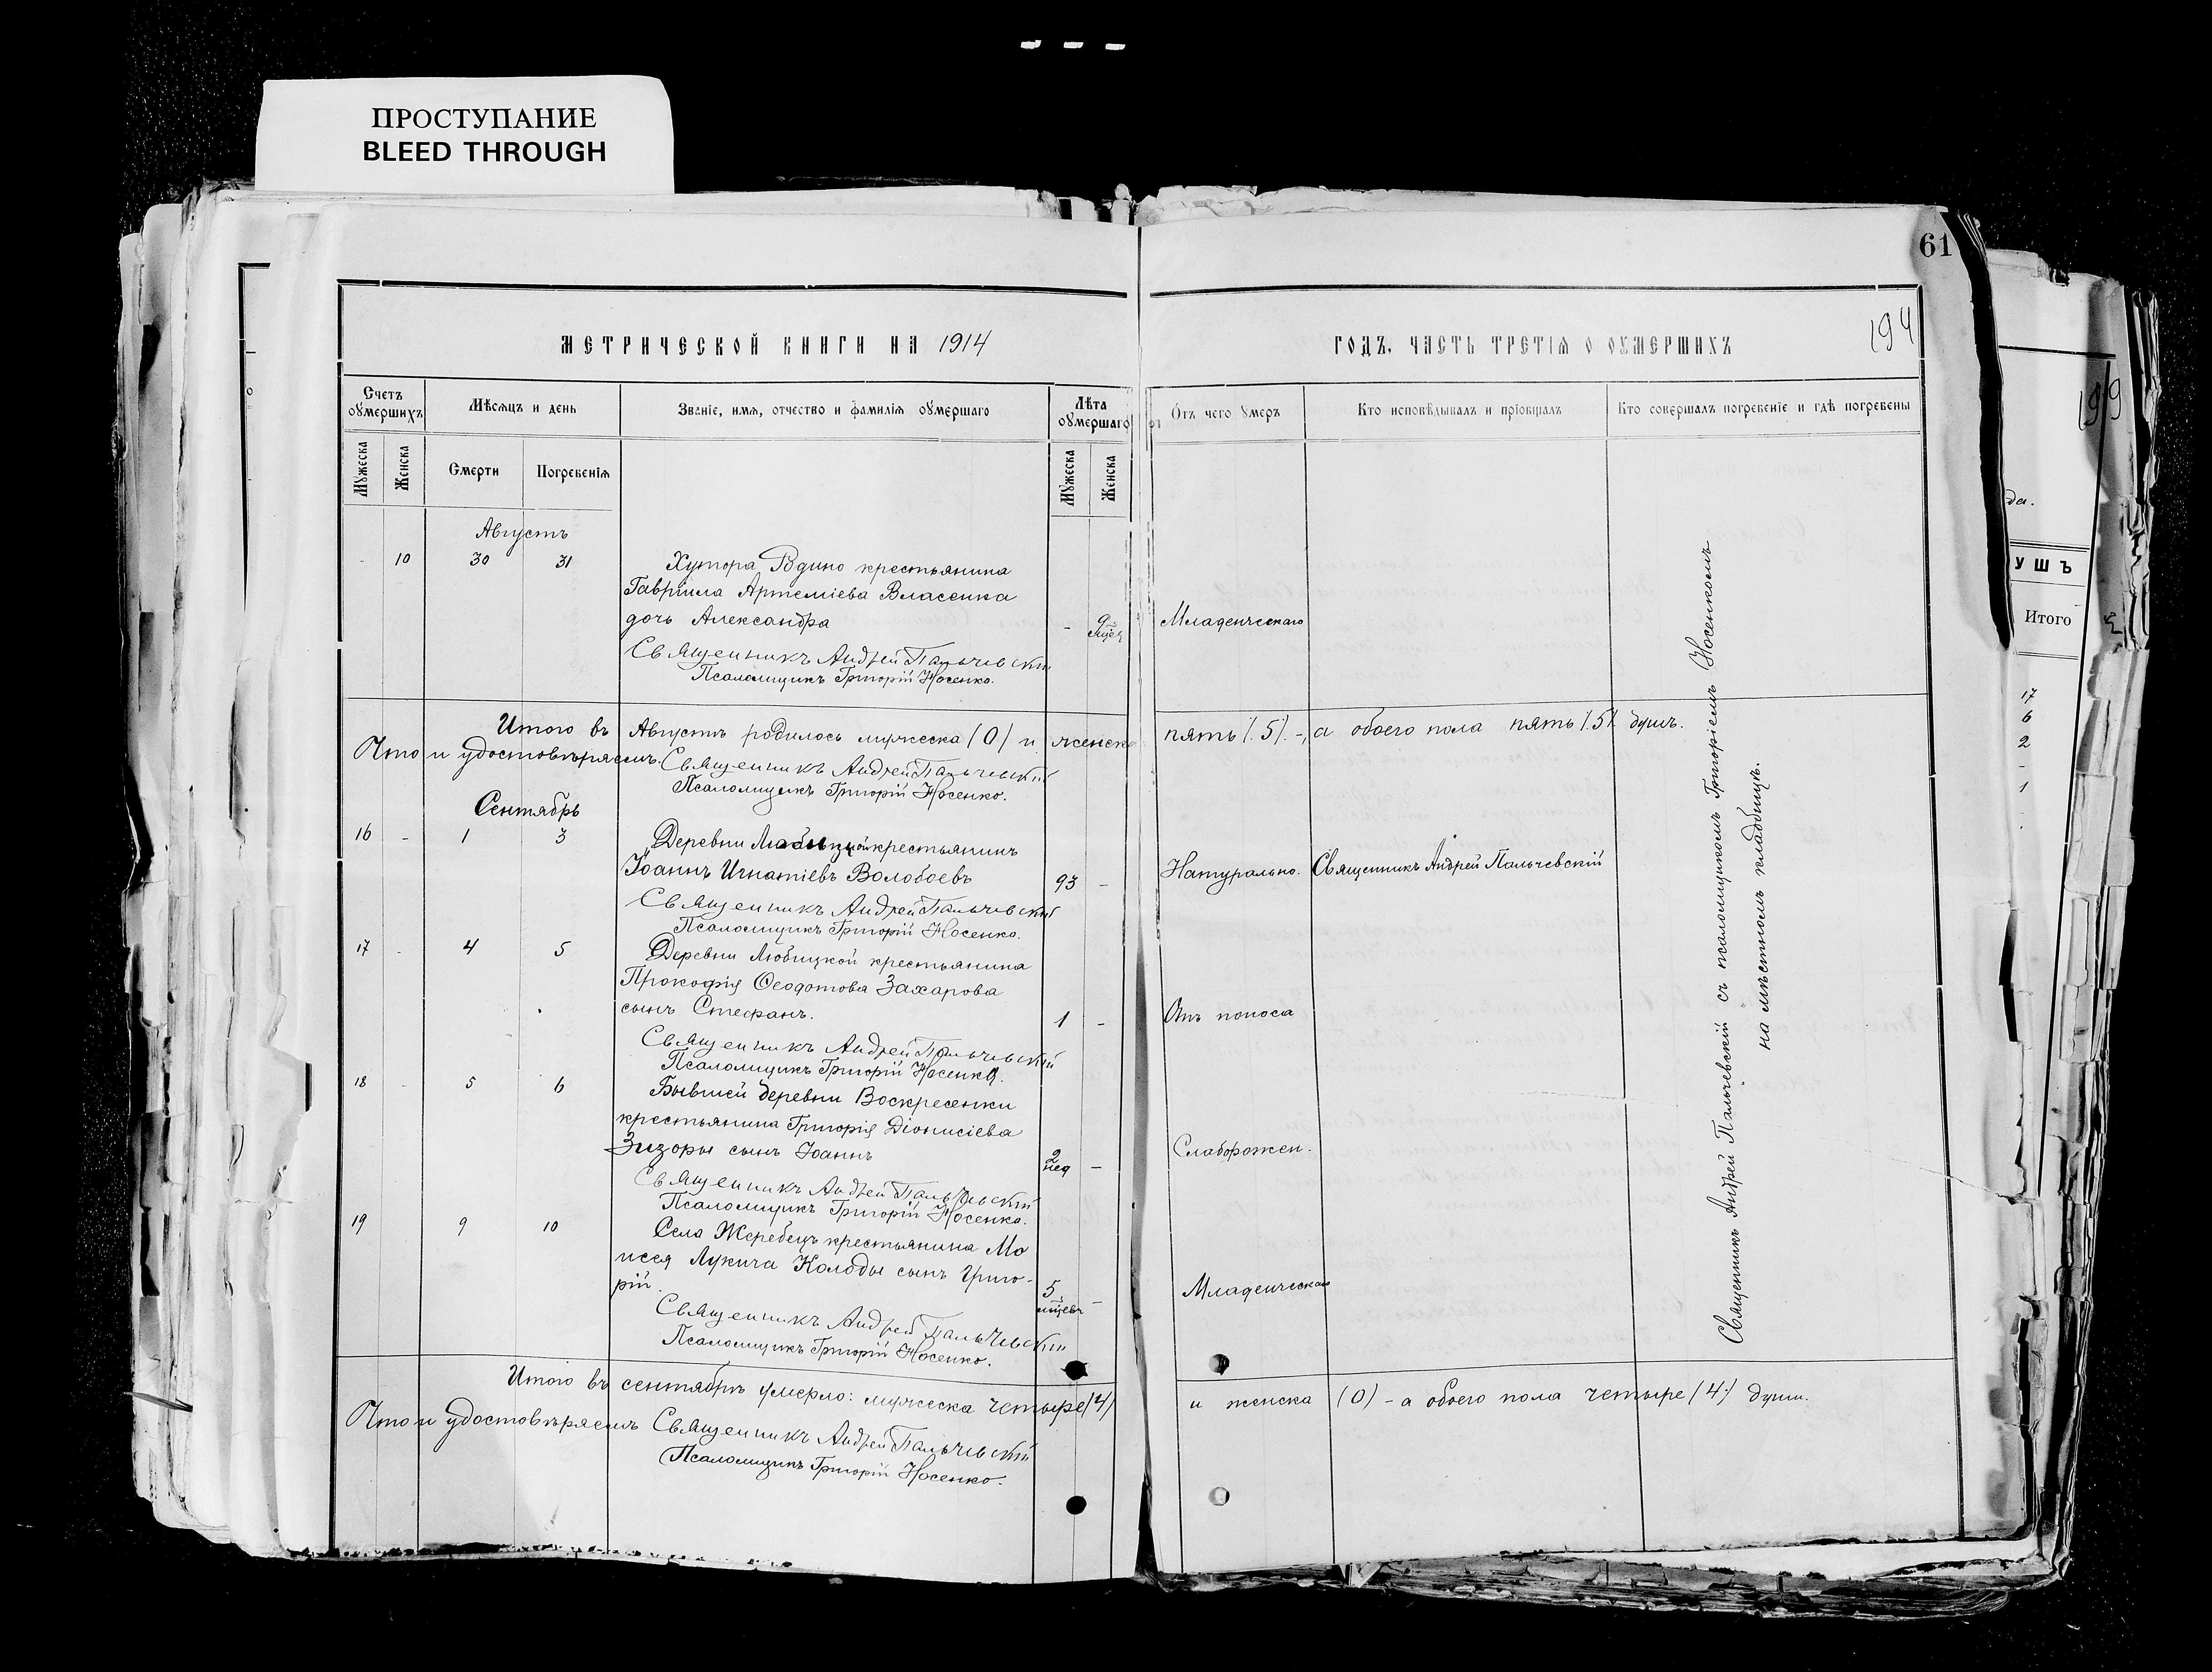 ПРОСТУПАНИЕ
BLEED THROUGH
61
МЕТРИЧЕСКОЙ КНИГИ НА 1914
ГОДЪ, ЧАСТЬ ТРЕТІЯ О ОУМЕРШИХЪ
194
Счетъ оумершихъ
Мѣсяцъ и день
Званіе, имя, отчество и фамилія оумершаго
Лѣта оумершаго
Отъ чего умеръ
Кто исповѣдывалъ и пріобщалъ
Кто совершалъ погребеніе и гдѣ погребены
Мужеска
Женска
Смерти
Погребенія
Мужеска
Женска
Августъ
- 10 30 31 Хутора Вдино крестьянина
Гавріила Артеміева Власенка
дочь Александра - 9 мцея Младенческаго
Священникъ Андрей Пальчевскій
Псаломщикъ Григорій Носенко.
Итого въ Августѣ родилось мужеска (0) и женска пять (5) -, а обоего пола пять (5) душъ.
Что и удостовѣряемъ. Священникъ Андрей Пальчевскій
Псаломщикъ Григорій Носенко.
Сентябрь
16 - 1 3 Деревни Любицкой крестьянинъ
Іоаннъ Игнатіевъ Волобоевъ 93 - Натурально. Священникъ Андрей Пальчевскій
Священникъ Андрей Пальчевскій
Псаломщикъ Григорій Носенко.
17 - 4 5 Деревни Любицкой крестьянина
Прокофія Ѳеодотова Захарова
сынъ Стефанъ. 1 - Отъ поноса
Священникъ Андрей Пальчевскій
Псаломщикъ Григорій Носенко.
18 - 5 6 Бывшей деревни Воскресенки
крестьянина Григорія Діонисіева
Зизоры сынъ Іоаннъ 2 нед - Слаборожен.
Священникъ Андрей Пальчевскій
Псаломщикъ Григорій Носенко.
19 9 10 Села Жеребецъ крестьянина Мо
исея Лукича Колоды сынъ Григо-
рій. 5 мцевъ - Младенческаго
Священникъ Андрей Пальчевскій
Псаломщикъ Григорій Носенко.
Итого въ сентябрѣ умерло: мужеска четыре (4) и женска (0) - а обоего пола четыре (4) души.
Что и удостовѣряемъ Священникъ Андрей Пальчевскій
Псаломщикъ Григорій Носенко.
Священникъ Андрей Пальчевскій съ псаломщикомъ Григоріемъ Носенкомъ
на мѣстномъ кладбищѣ.
199
да.
УШЪ
Итого
17
6
2
-
1